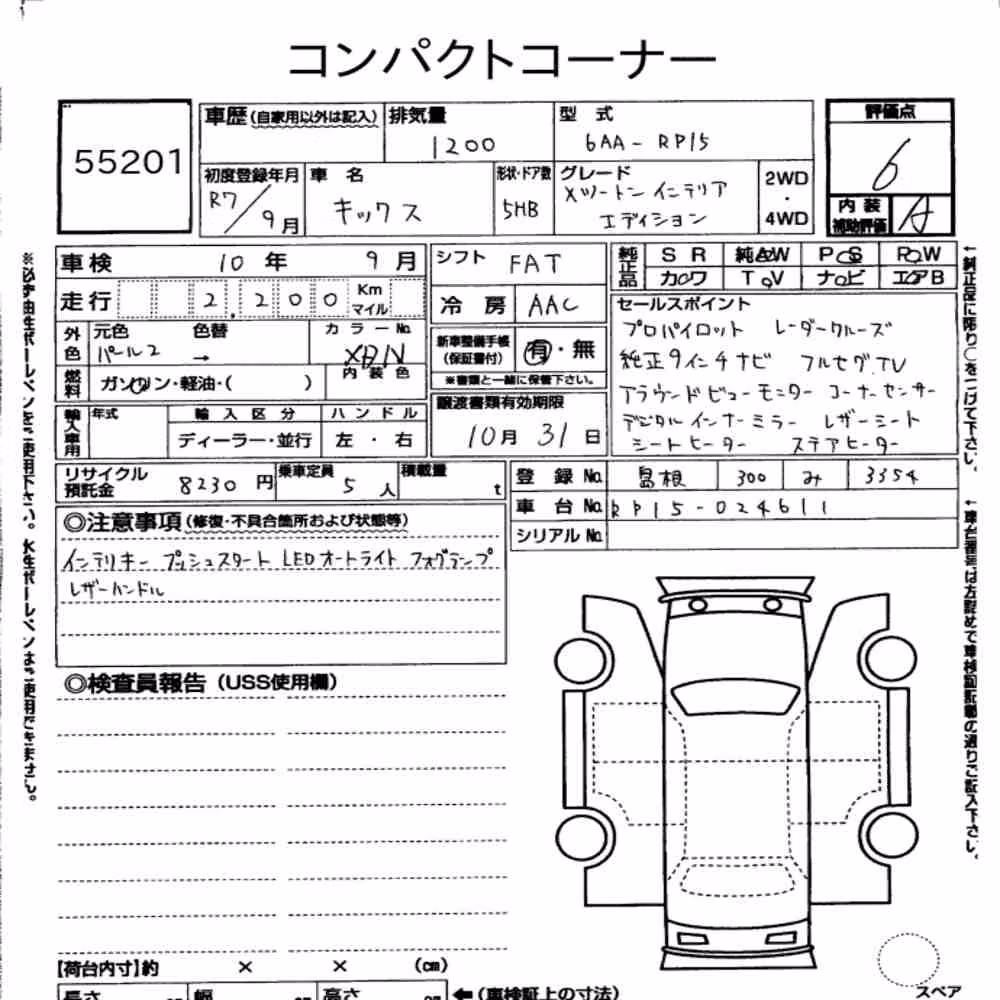 コンパクトコーナー
55201
車歴 (自家用以外は記入)
排気量
1200
型 式
6AA - RP15
評価点
6
初度登録年月
R7/9月
車 名
キックス
形状・ドア数
5HB
グレード
Xツートン インテリア
エディション
2WD
・
4WD
内 装
補助評価
A
車検
10年 9月
走行
2,200
Km
マイル
シフト
FAT
冷 房
AAC
純正品
S R
純AW
P S
P W
カワ
T V
ナビ
エアB
外色
元色
パール2
色替
→
カラーNo.
XBN
内 装 色
燃料
ガソリン・軽油・( )
新車整備手帳
(保証書付)
有・無
※書類と一緒に保管下さい。
セールスポイント
プロパイロット レーダークルーズ
純正9インチナビ フルセグTV
アラウンドビューモニター コーナーセンサー
デジタルインナーミラー レザーシート
シートヒーター ステアヒーター
輸入車用
年式
輸 入 区 分
ディーラー・並行
ハ ン ド ル
左 ・ 右
譲渡書類有効期限
10月 31日
リサイクル
預託金
8230円
乗車定員
5人
積載量
t
登 録 No.
島根
300
み
3354
車 台 No.
RP15-024611
シリアル No.
◎注意事項 (修復・不具合箇所および状態等)
インテリキー プッシュスタート LEDオートライト フォグランプ
レザーハンドル
◎検査員報告 (USS使用欄)
【荷台内寸】約 × × (cm)
長さ
幅
高さ
←(車検証上の寸法)
スペア
※必ず油性ボールペンをご使用下さい。水性ボールペンはご使用できません。
←純正品に限り〇をつけて下さい。
←車台番号は左詰めで車検証記載の通りご記入下さい。